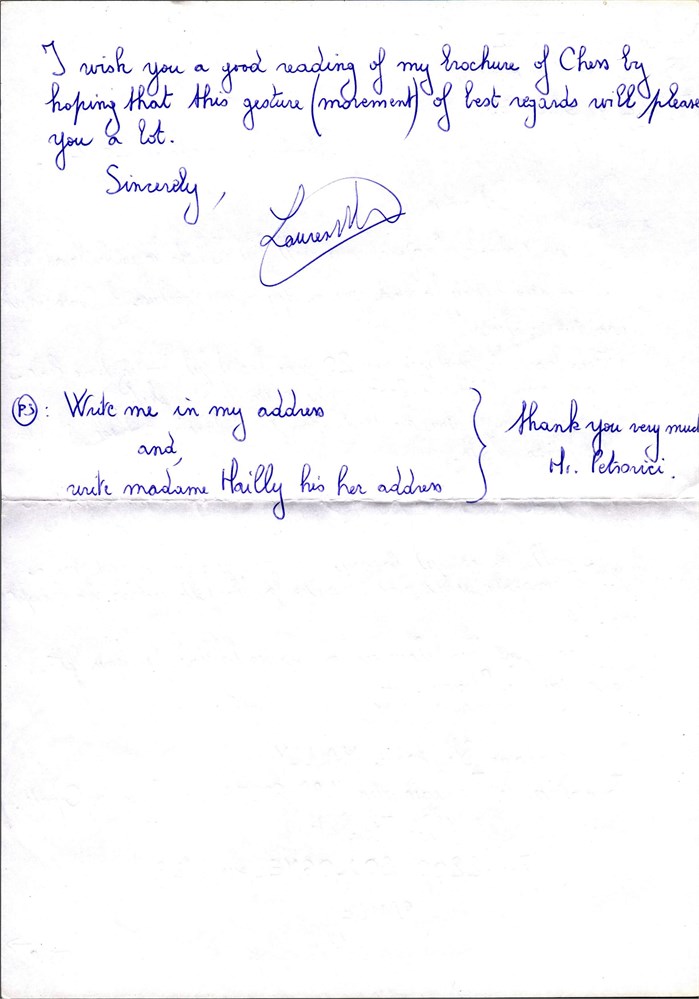 I wish you a good reading of my brochure of Chess by
hoping that this gesture (movement) of best regards will please
you a lot.
Sincerely,
Laurent
(PS): Write me in my address
and,
write madame Hailly his her address
thank you very much
Mr. Petrovici.